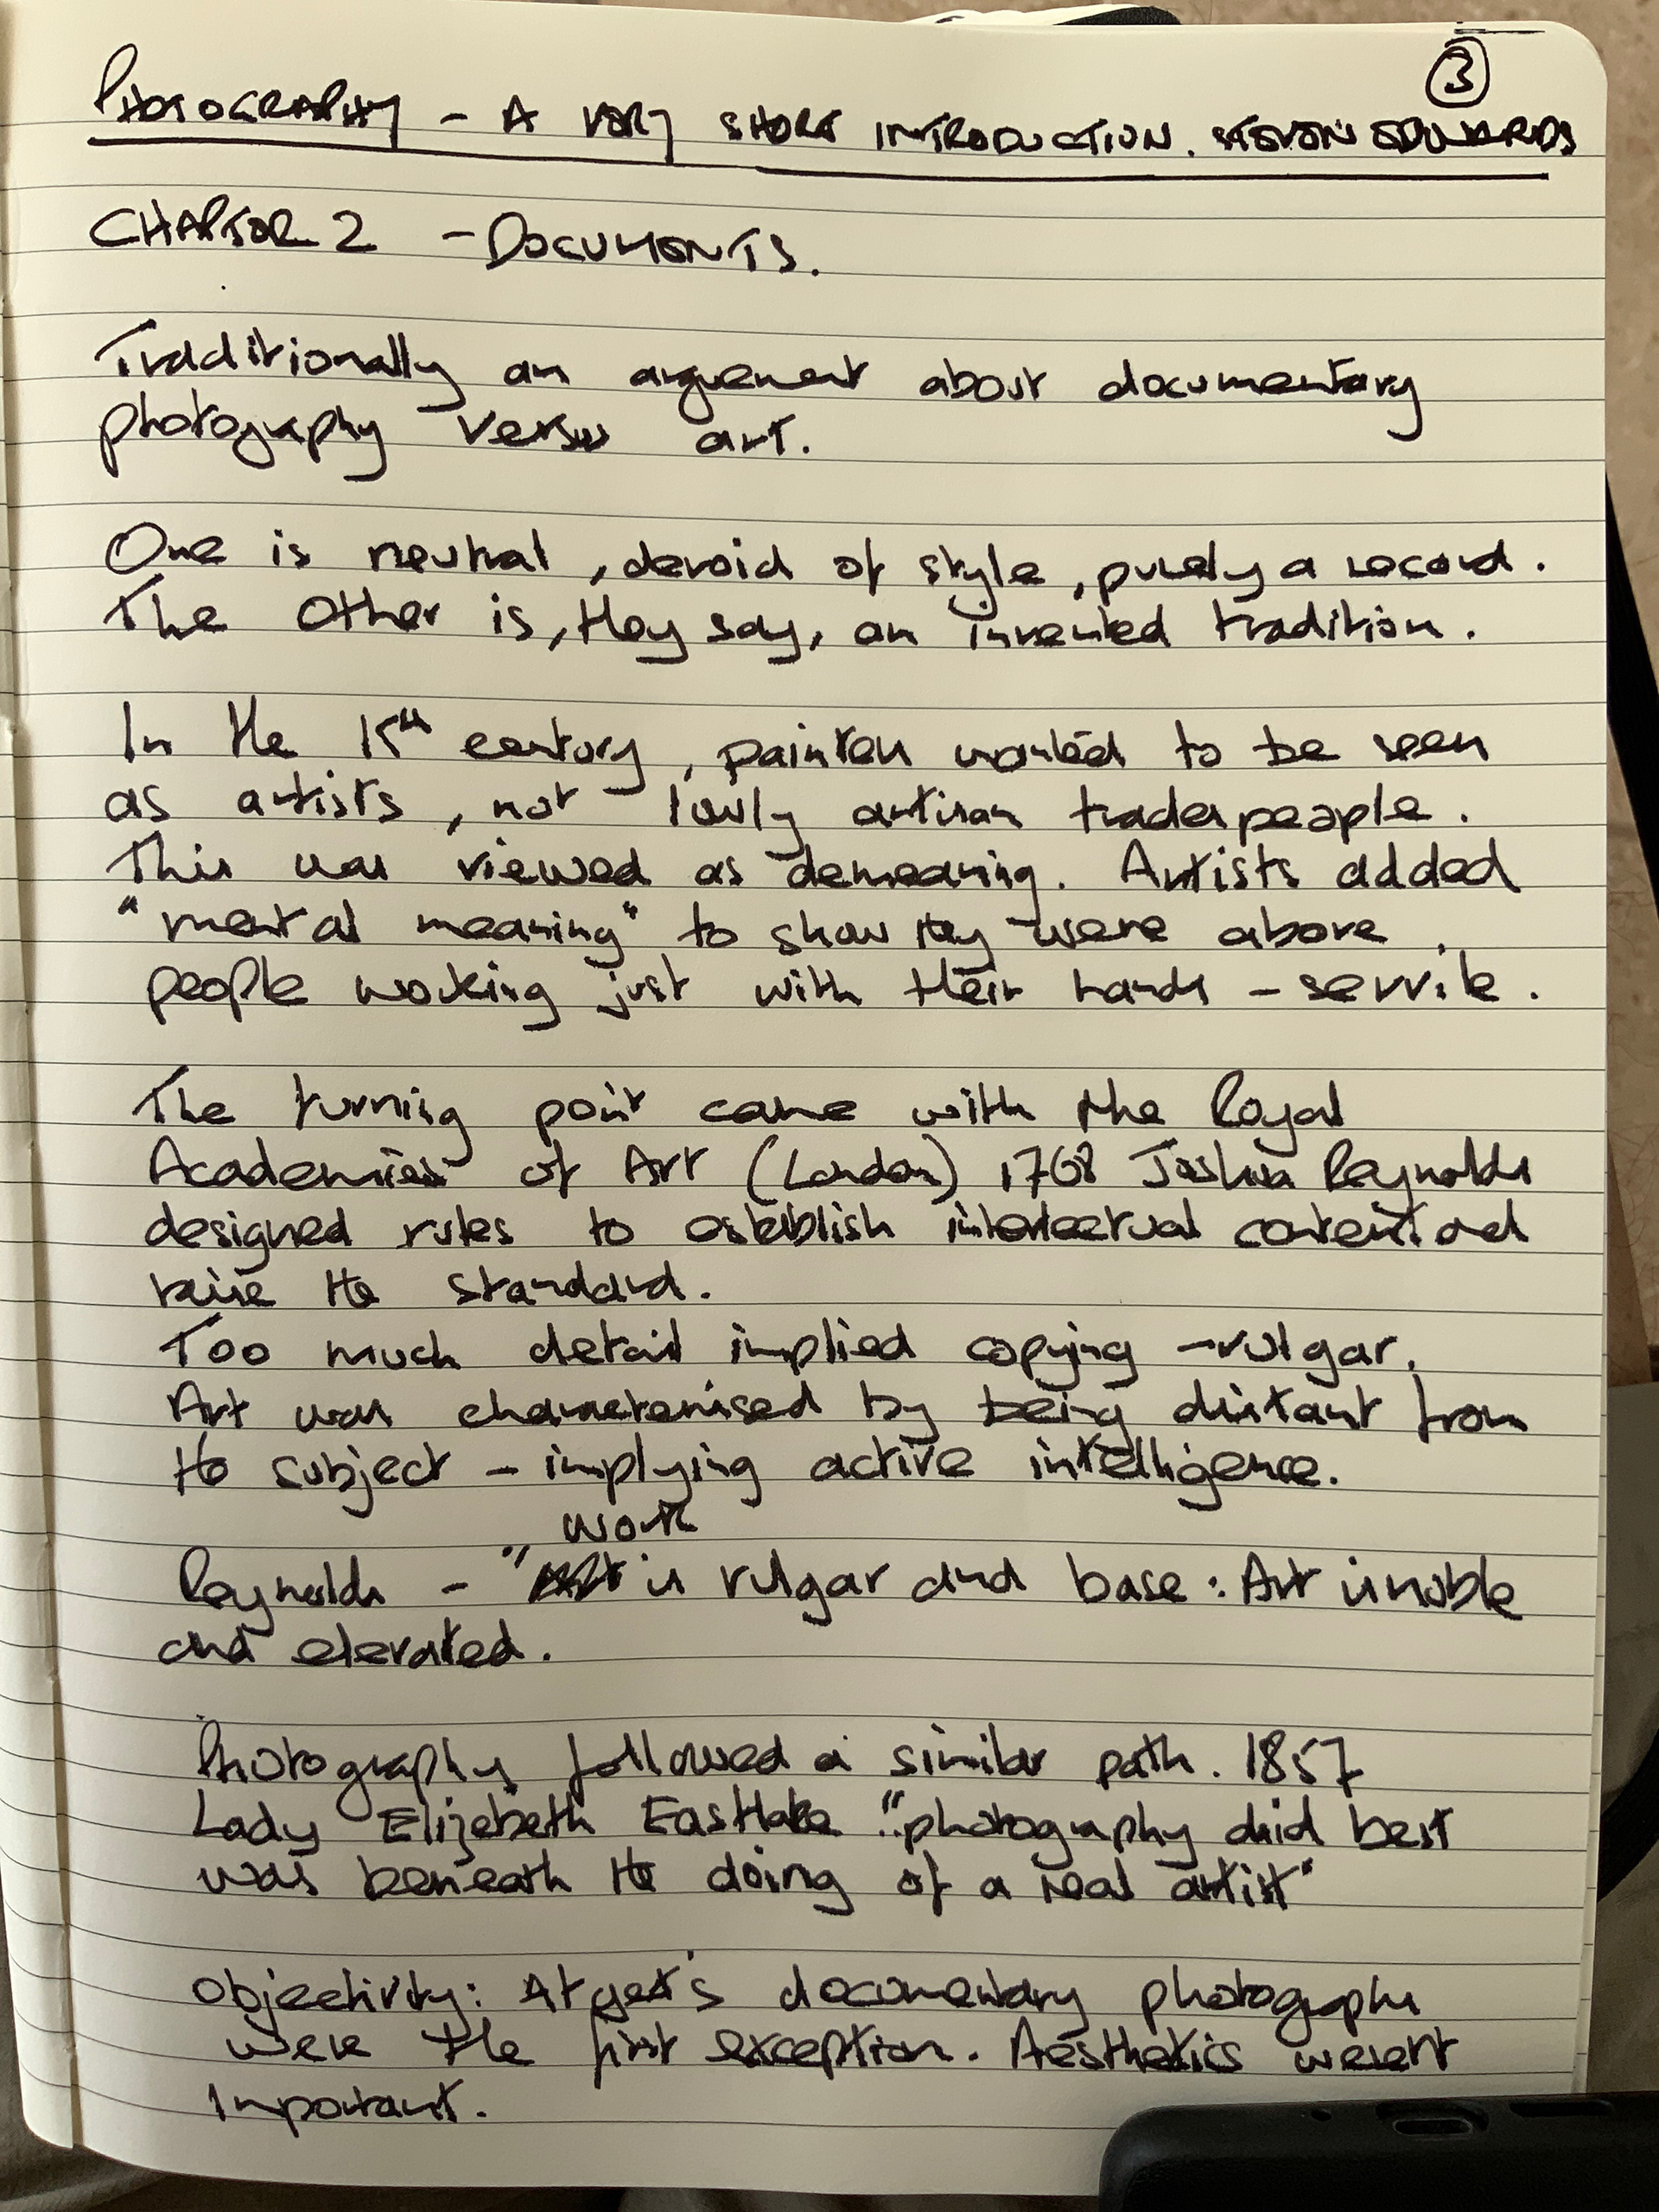 3
PHOTOGRAPHY - A VERY SHORT INTRODUCTION. STEVEN EDWARDS
CHAPTER 2 - DOCUMENTS.
Traditionally an arguement about documentary
photography versus art.
One is neutral, devoid of style, purely a record.
The other is, they say, an invented tradition.
In the 15th century, painters wanted to be seen
as artists, not lowly artisan traderpeople.
This was viewed as demeaning. Artists added
"mental meaning" to show they were above
people working just with their hands - servile.
The turning point came with the Royal
Academies of Art (London) 1768 Joshua Reynolds
designed rules to establish intellectual content and
raise the standard.
Too much detail implied copying - vulgar.
Art was characterised by being distant from
the subject - implying active intelligence.
work
Reynolds - " is vulgar and base: Art is noble
and elevated.
Photography followed a similar path. 1857
Lady Elizabeth Eastlake "photography did best
was beneath the doing of a real artist"
Objectivity: Atget's documentary photographs
were the first exception. Aesthetics weren't
important.